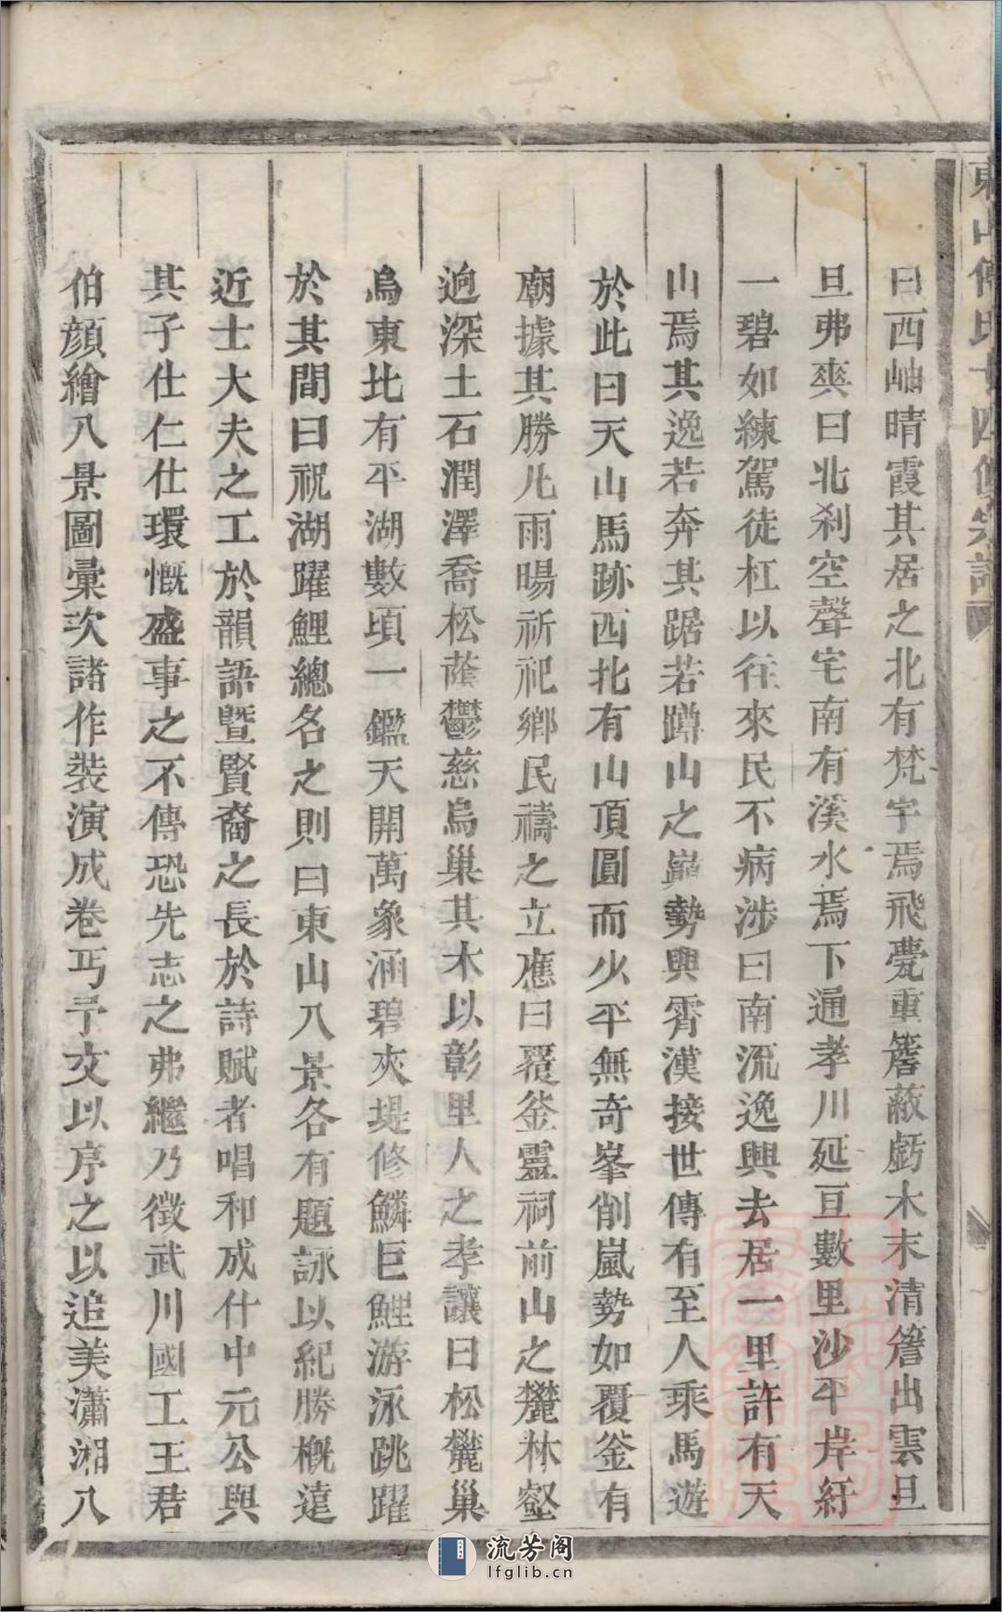 曰西岫晴霞其居之北有梵宇焉飛甍重簷蔽虧木末清簷出雲旦
旦弗爽曰北刹空聲宅南有溪水焉下通孝川延亘數里沙平岸紆
一碧如練駕徒杠以往來民不病涉曰南流逸興去居一里許有天
山焉其逸若奔其踞若蹲山之巔勢與霄漢接世傳有至人乘馬遊
於此曰天山馬跡西北有山頂圓而少平無奇峯削嵐勢如覆釜有
廟據其勝凡雨暘祈祀鄉民禱之立應曰覆釜靈祠前山之麓林壑
逈深土石潤澤喬松蔭鬱慈烏巢其木以彰里人之孝讓曰松麓巢
烏東北有平湖數頃一鑑天開萬象涵碧夾堤修鱗巨鯉游泳跳躍
於其間曰祝湖躍鯉總名之則曰東山八景各有題詠以紀勝概遠
近士大夫之工於韻語暨賢裔之長於詩賦者唱和成什中元公與
其子仕仁仕環慨盛事之不傳恐先志之弗繼乃徵武川國工王君
伯顏繪八景圖彙次諸作裝演成卷丐予文以序之以追美瀟湘八
流芳阁
lfglib.cn